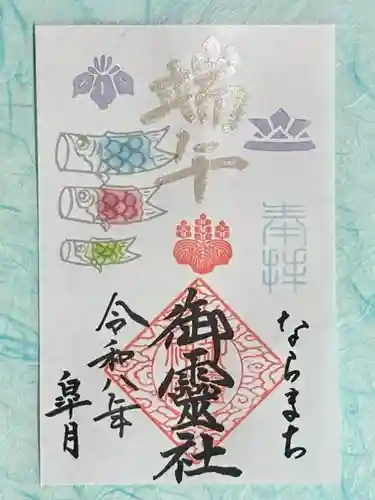 端午
奉拝
ならまち
御靈社
令和八年
皐月